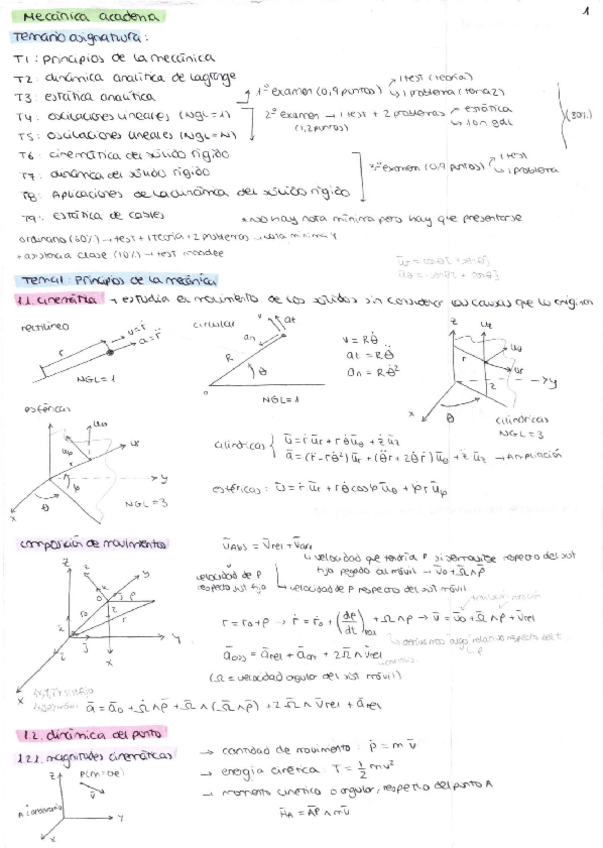 Mecánica academia
1
Temario asignatura:
T1: principios de la mecánica
T2: dinámica analítica de lagrange
T3: estática analítica
T4: oscilaciones lineales (NGL=1)
T5: oscilaciones lineales (NGL=N)
T6: cinemática del sólido rígido
T7: dinámica del sólido rígido
T8: Aplicaciones de la dinámica del sólido rígido
T9: estática de cables
1º examen (0,9 puntos) → 1 test (teoría)
↳ 1 problema (tema 2)
2º examen → 1 test + 2 problemas → estática
(1,2 puntos) ↳ 1 o n gdl
(30%)
3º examen (0,9 puntos) → 1 test
↳ 1 problema
* no hay nota mínima pero hay que presentarse
ordinario (60%) → test + 1 teoría + 2 problemas → nota mínima 4
+ asistencia clase (10%) → test moodle
Tema 1: Principios de la mecánica
1.1. cinemática → estudia el movimiento de los sólidos sin considerar las causas que lo originan
rectilíneo
v = ṙ
a = r̈
r
NGL=1
circular
v
at
an
R
θ
NGL=1
v = Rθ̇
at = Rθ̈
an = Rθ̇²
z
uz
uθ
ur
y
x
θ
cilíndricas
NGL=3
esféricas
uθ
ur
uφ
y
φ
θ
x
NGL=3
cilíndricas { ῡ = ṙ ūr + rθ̇ ūθ + ż ūz
ā = (r̈ - rθ̇²) ūr + (θ̈r + 2θ̇ṙ) ūθ + z̈ ūz → Ampliación
esféricas: ῡ = ṙ ūr + rθ̇ cosφ ūθ + φ̇r ūφ
composición de movimientos
v̄abs = v̄rel + v̄arr
↳ velocidad que tendría P si se moviese respecto del sist
fijo pegado al móvil → v̄0 + Ω̄ ∧ ρ̄
velocidad de P
respecto sist fijo
velocidad de P respecto del sist móvil
r = r0 + ρ → ṙ = ṙ0 + (dρ/dt)rel + Ω ∧ ρ → v̄ = v̄0 + Ω̄ ∧ ρ̄ + v̄rel
āabs = ārel + āarr + 2Ω̄ ∧ v̄rel
(Ω = velocidad angular del sist móvil)
ā = ā0 + Ω̄̇ ∧ ρ̄ + Ω̄ ∧ (Ω̄ ∧ ρ̄) + 2Ω̄ ∧ v̄rel + ārel
1.2. dinámica del punto
1.2.1. magnitudes cinemáticas
→ cantidad de movimiento: p̄ = m v̄
→ energía cinética: T = 1/2 mv²
→ momento cinético o angular, respecto del punto A
H̄A = ĀP ∧ mv̄
z
P(m=cte)
v̄
A
y
x